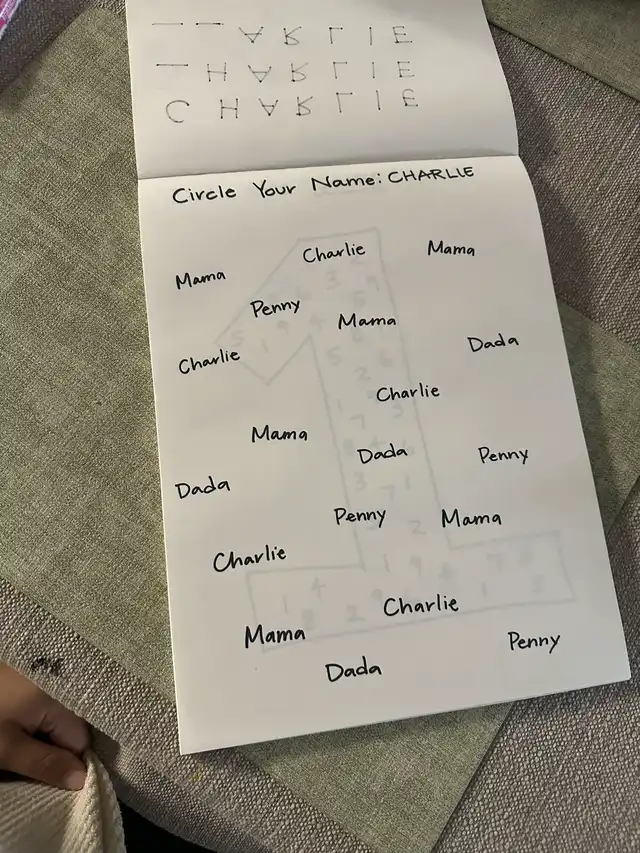 A R L I E
H A R L I E
C H A R L I E
Circle Your Name: CHARLIE
Charlie Mama
Mama
Penny
Mama
Dada
Charlie
Charlie
Mama
Dada
Penny
Dada
Penny
Mama
Charlie
Charlie
Mama
Penny
Dada